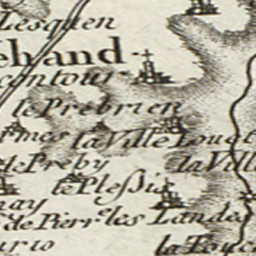 Lesquen
ehand
contour
le Prebrien
la Ville Louet
de Preby
la Ville
le Plessis
nay
de Pierr.^e
les Landes
urio
la Touc